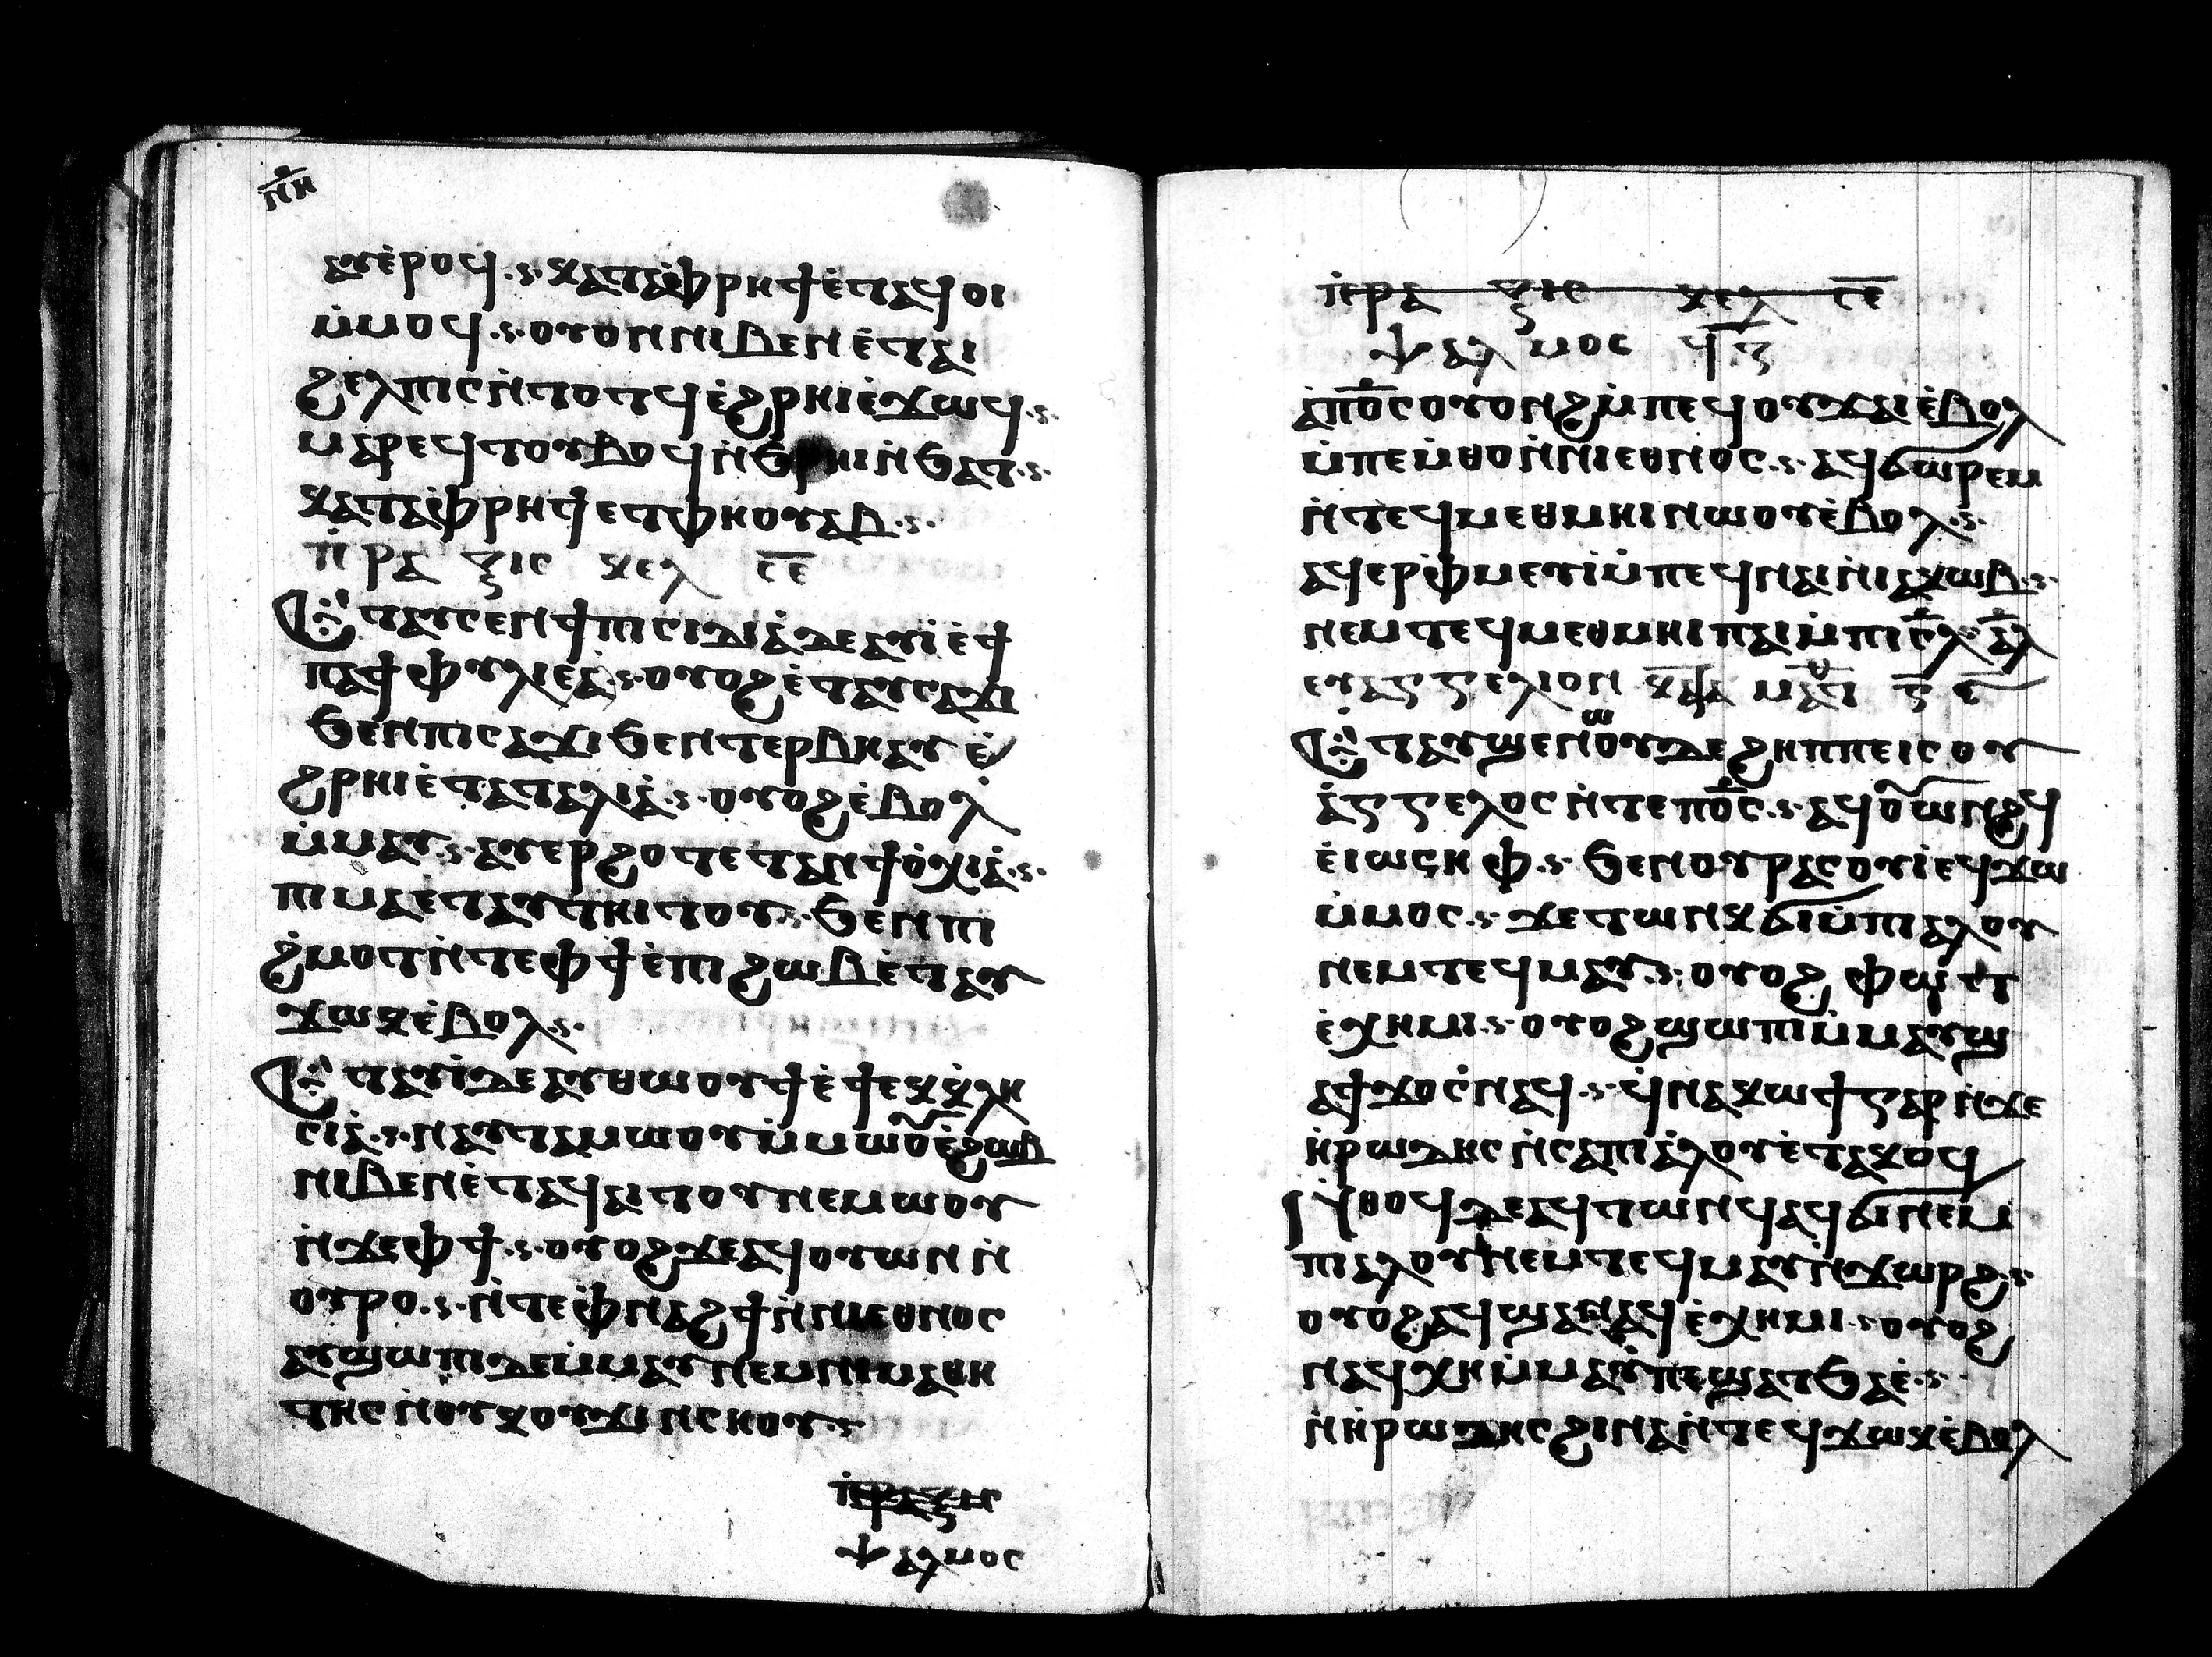 ⲡⲏ
ⲁⲩⲉ̀ⲣⲟϥ ·ⲋ· ⲕⲁⲧⲁⲫ̀ⲣⲏϯⲉ̀ⲧⲁϥⲟⲓ
ⲙ̀ⲙⲟϥ ·ⲋ· ⲟⲩⲟⲛⲛⲓⲃⲉⲛⲉ̀ⲧⲁⲓ
ϩⲉⲗⲡⲓⲥⲛ̀ⲧⲟⲧϥⲉ̀ϩⲣⲏⲓⲉ̀ϫⲱϥ ·ⲋ·
ⲙⲁⲣⲉϥⲧⲟⲩⲃⲟϥⲛ̀ϧⲣⲏⲓⲛ̀ϧⲁⲧ ·ⲋ·
ⲕⲁⲧⲁⲫ̀ⲣⲏϯⲉⲧⲫⲏⲟⲩⲁⲃ ·ⲋ·
ⲡ̀ⲣⲁⲝⲓⲥ ⲕⲉⲗ ⲥ̅ⲉ̅
Ⲉ̀ⲧⲁⲩⲥⲉⲛϯⲡⲓⲥⲓⲇⲓⲁ̀ⲇⲉⲁⲩⲓ̀ⲉ̀ϯ
ⲡⲁϯⲫⲩⲗⲓⲉⲁ̀ ·ⲋ· ⲟⲩⲟϩⲉ̀ⲧⲁⲩⲥⲁϫⲓ
ϧⲉⲛⲡⲓⲥⲁϫⲓϧⲉⲛⲧⲉⲣⲃⲏⲁⲩⲉ̀
ϩⲣⲏⲓⲉ̀ⲧⲁⲧⲁⲗⲓⲁ̀ ·ⲋ· ⲟⲩⲟϩⲉ̀ⲃⲟⲗ
ⲙ̀ⲙⲁⲩ ·ⲋ· ⲁⲩⲉⲣϩⲟⲧⲉⲧⲁⲛϯⲟ̀ⲭⲓⲁ̀ ·ⲋ·
ⲡⲓⲙⲁⲉ̀ⲧⲁⲩⲧⲏⲓⲧⲟⲩ ·ⲋ· ϧⲉⲛⲡⲓ
ϩ̀ⲙⲟⲧⲛ̀ⲧⲉⲫϯⲉ̀ⲡⲓϩⲱⲃⲉ̀ⲧⲁⲩ
ϫⲱⲕⲉ̀ⲃⲟⲗ ·ⲋ·
Ⲉ̀ⲧⲁⲩⲓ̀ⲇⲉⲁⲩⲑⲱⲟⲩϯⲉ̀ϯⲉⲕⲕ̀ⲗⲏ
ⲥⲓⲁ̀ ·ⲋ· ⲛⲁⲩⲧⲁⲙⲱⲟⲩⲙ̀ⲙⲱⲟⲩⲉ̀ϩⲱⲃ
ⲛⲓⲃⲉⲛⲉ̀ⲧⲁϥⲁⲓⲧⲟⲩⲛⲉⲙⲱⲟⲩ
ⲛ̀ϫⲉⲫϯ ·ⲋ· ⲟⲩⲟϩϫⲉⲁϥⲟⲩⲱⲛⲛ̀
ⲟⲩⲣⲟ ·ⲋ· ⲛ̀ⲧⲉⲫ̀ⲛⲁϩϯⲛ̀ⲛⲓⲉⲑⲛⲟⲥ
ⲁⲩϣⲱⲡⲓⲇⲉⲙ̀ⲙⲁⲩⲛⲉⲙⲛⲓⲙⲁⲑⲏ
ⲧⲏⲥⲛ̀ⲟⲩⲕⲟⲩϫⲓⲛⲥⲏⲟⲩ ·ⲋ·
ⲯⲁⲗⲙⲟⲥ
ⲡ̀ⲣⲁⲝⲓⲥ ⲕⲉⲗ ⲥ̅ⲉ̅
ⲯⲁⲗⲙⲟⲥ ϥ̅ⲍ̅
ⲁ̀ⲡⲟ̅ⲥⲟⲩⲟⲛϩⲙ̀ⲡⲉϥⲟⲩϫⲁⲓⲉ̀ⲃⲟⲗ
ⲙ̀ⲡⲉⲙ̀ⲑⲟⲛ̀ⲛⲓⲉⲑⲛⲟⲥ ·ⲋ· ⲁϥϭⲱⲣⲉⲙ
ⲛ̀ⲧⲉϥⲙⲉⲑⲙⲏⲓⲛⲱⲟⲩⲉ̀ⲃⲟⲗ ·ⲋ·
ⲁϥⲉⲣⲫ̀ⲙⲉⲩⲓ̀ⲙ̀ⲡⲉϥⲛⲁⲓⲛ̀ⲓⲁⲕⲱⲃ ·ⲋ·
ⲛⲉⲙⲧⲉϥⲙⲉⲑⲙⲏⲓⲡⲁⲓⲙ̀ⲡⲓⲥ̅ⲗ̅ ⲁ̅ⲗ̅
ⲉⲩⲁⲅⲅⲉⲗⲓⲟⲛ ⲕⲁⲧⲁ ⲙⲁⲧ ⲋ̅ ⲉ̅
Ⲉ̀ⲧⲁⲩϣⲉⲛⲱⲟⲩⲇⲉϩⲏⲡⲡⲉⲓⲥⲟⲩ
ⲁ̀ⲅⲅⲉⲗⲟⲥⲛ̀ⲧⲉⲡⲟ̅ⲥ ·ⲋ· ⲁϥⲟⲩⲱⲛϩϥ
ⲉ̀ⲓⲱⲥⲏⲫ ·ⲋ· ϧⲉⲛⲟⲩⲣⲁⲥⲟⲩⲓ̀ⲉϥϫⲱ
ⲙ̀ⲙⲟⲥ ·ⲋ· ϫⲉⲧⲱⲛⲕϭⲓⲙ̀ⲡⲓⲁⲗⲟⲩ
ⲛⲉⲙⲧⲉϥⲙⲁⲩ ·ⲋ· ⲟⲩⲟϩ ⲫⲱⲧ
ⲉ̀ⲭⲏⲙⲓ ·ⲋ· ⲟⲩⲟϩϣⲱⲡⲓⲙ̀ⲙⲁⲩϣ
ⲁϯϫⲟⲥⲛⲁϥ ·ⲋ· ϥ̀ⲛⲁⲕⲱϯⲅⲁⲣⲛ̀ϫⲉ
ⲏ̀ⲣⲱⲇⲏⲥⲛ̀ⲥⲁⲡⲓⲁ̀ⲗⲟⲩⲉ̀ⲧⲁⲕⲟϥ
Ⲛ̀ⲑⲟϥⲇⲉⲁϥⲧⲱⲛϥⲁϥϭⲓⲛⲉⲙ
ⲡⲓⲁⲗⲟⲩⲛⲉⲙⲧⲉϥⲙⲁⲩⲛ̀ϫⲱⲣϩ ·ⲋ·
ⲟⲩⲟϩⲁϥϣⲁⲛⲁϥⲉ̀ⲭⲏⲙⲓ ·ⲋ· ⲟⲩⲟϩ
ⲛⲁϥⲭⲏⲙ̀ⲙⲁⲩⲡⲉϣⲁⲧϧⲁⲉ̀ ·ⲋ·
ⲛ̀ⲏ̀ⲣⲱⲇⲏⲥϩⲓⲛⲁⲛ̀ⲧⲉϥϫⲱⲕⲉ̀ⲃⲟⲗ